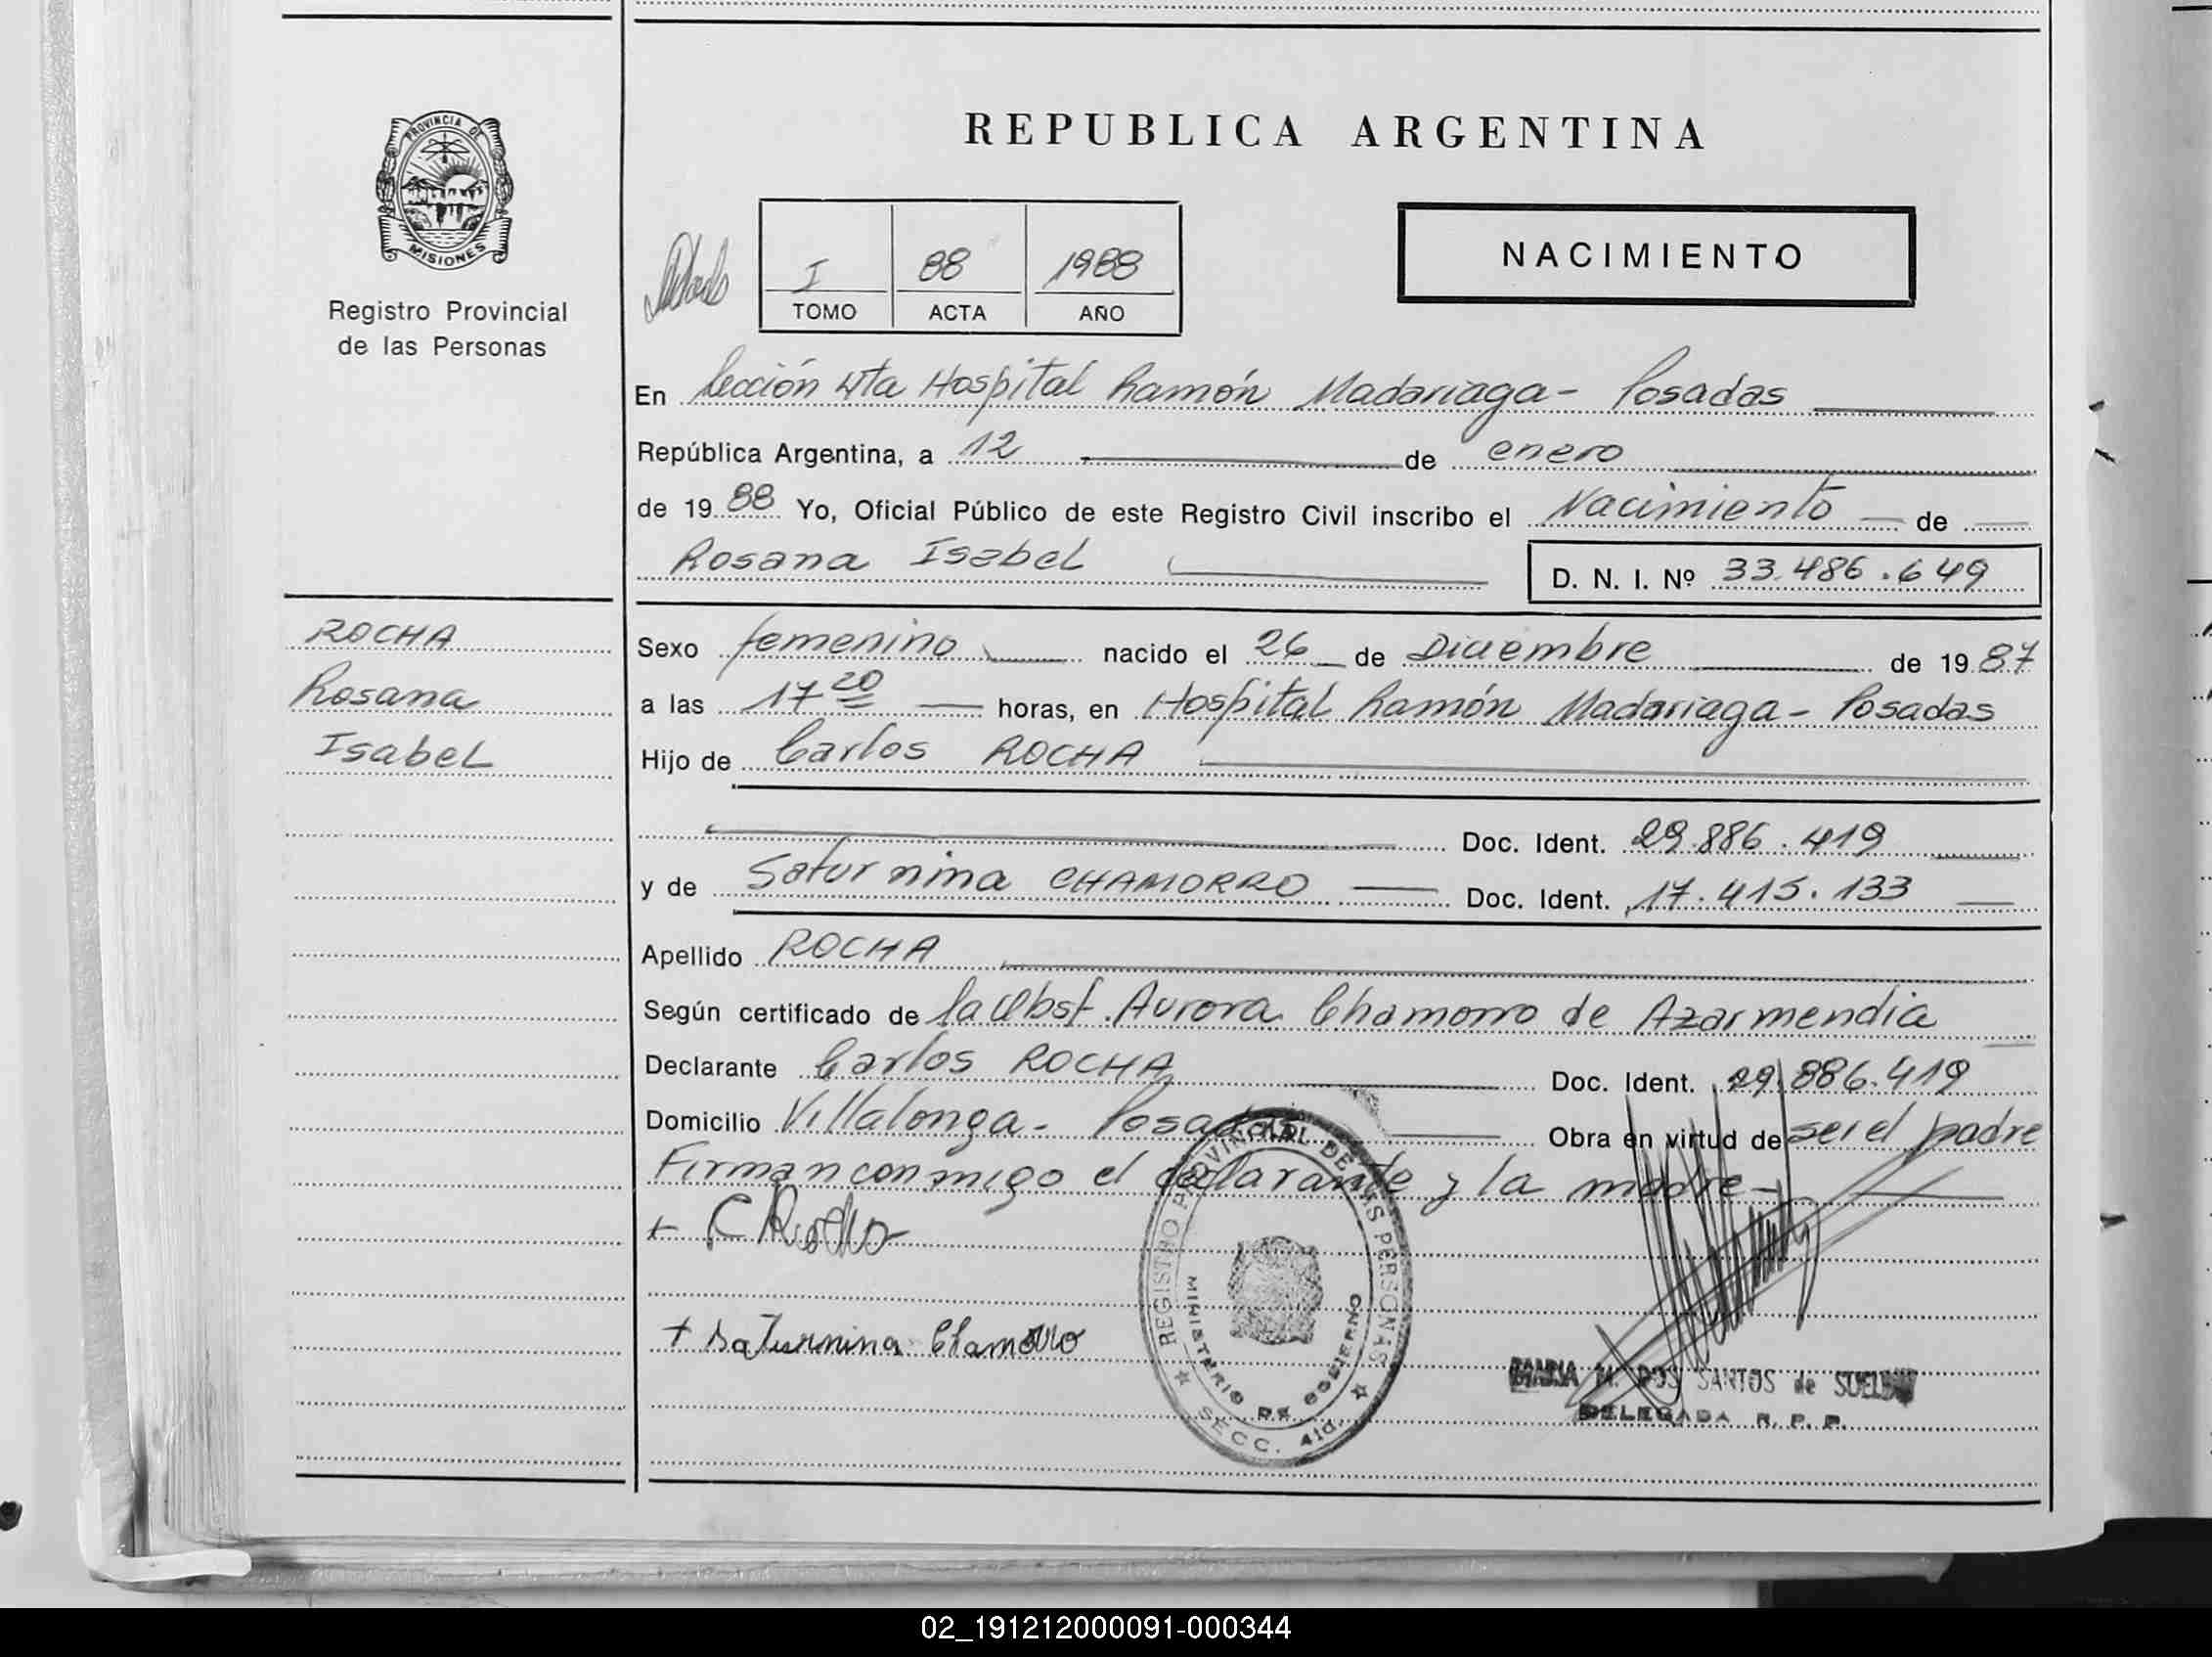 PROVINCIA DE
MISIONES
Registro Provincial
de las Personas
ROCHA
Rosana
Isabel
REPUBLICA ARGENTINA
I 88 1988
TOMO ACTA AÑO
NACIMIENTO
En Sección 4ta Hospital Ramón Madariaga - Posadas
República Argentina, a 12 de enero
de 1988 Yo, Oficial Público de este Registro Civil inscribo el Nacimiento de
Rosana Isabel D. N. I. Nº 33.486.649
Sexo femenino nacido el 26 de Diciembre de 1987
a las 17 20 horas, en Hospital Ramón Madariaga - Posadas
Hijo de Carlos ROCHA
Doc. Ident. 29.886.419
y de Saturnina CHAMORRO Doc. Ident. 17.415.133
Apellido ROCHA
Según certificado de la Obst. Aurora Chamorro de Azarmendia
Declarante Carlos ROCHA Doc. Ident. 29.886.419
Domicilio Villalonga - Posadas Obra en virtud de ser el padre
Firman conmigo el declarante y la madre -
+ C Rocha
+ Saturnina Chamorro
REGISTRO PROVINCIAL DE LAS PERSONAS
MINISTERIO DE GOBIERNO
SECC. 4ta.
M. DOS SANTOS de
DELEGADA R. P. P.
02_191212000091-000344